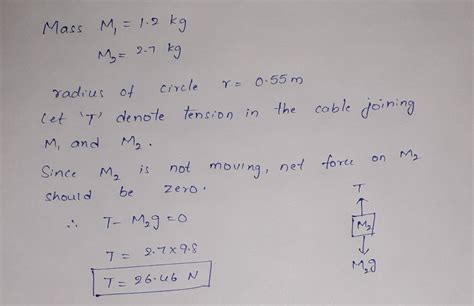 Mass M₁ = 1.2 kg
M₂ = 2.7 kg
radius of circle r = 0.55m
Let 'T' denote tension in the cable joining
M₁ and M₂.
Since M₂ is not moving, net force on M₂
should be zero.
∴ T - M₂g = 0
T = 2.7 x 9.8
T = 26.46 N
T
M₂
M₂g